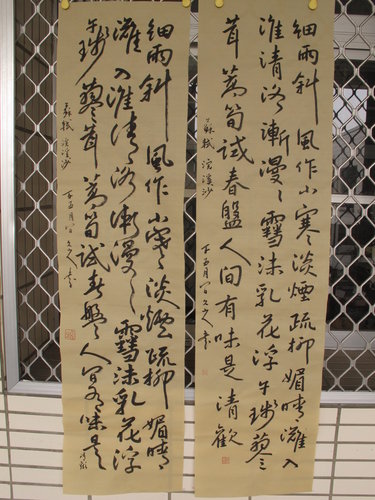 細雨斜風作小寒淡煙疏柳媚晴灘入
淮清洛漸漫々雪沫乳花浮午琖蓼
茸蒿筍試春盤人间有味是清歡
蘇軾 浣溪沙
細雨斜風作小寒淡煙疏柳媚晴
灘入淮清洛漸漫々雪沫乳花浮
午琖蓼茸蒿筍試春盤人间有味是
清歡
蘇軾 浣溪沙